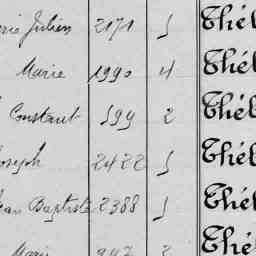 rie Julien 2171 5 Thél
Marie 1990 4 Thél
Constant 599 2 Thél
Joseph 2422 5 Thél
Jean Baptiste 2388 5 Thél
Marie 942 2 Thé